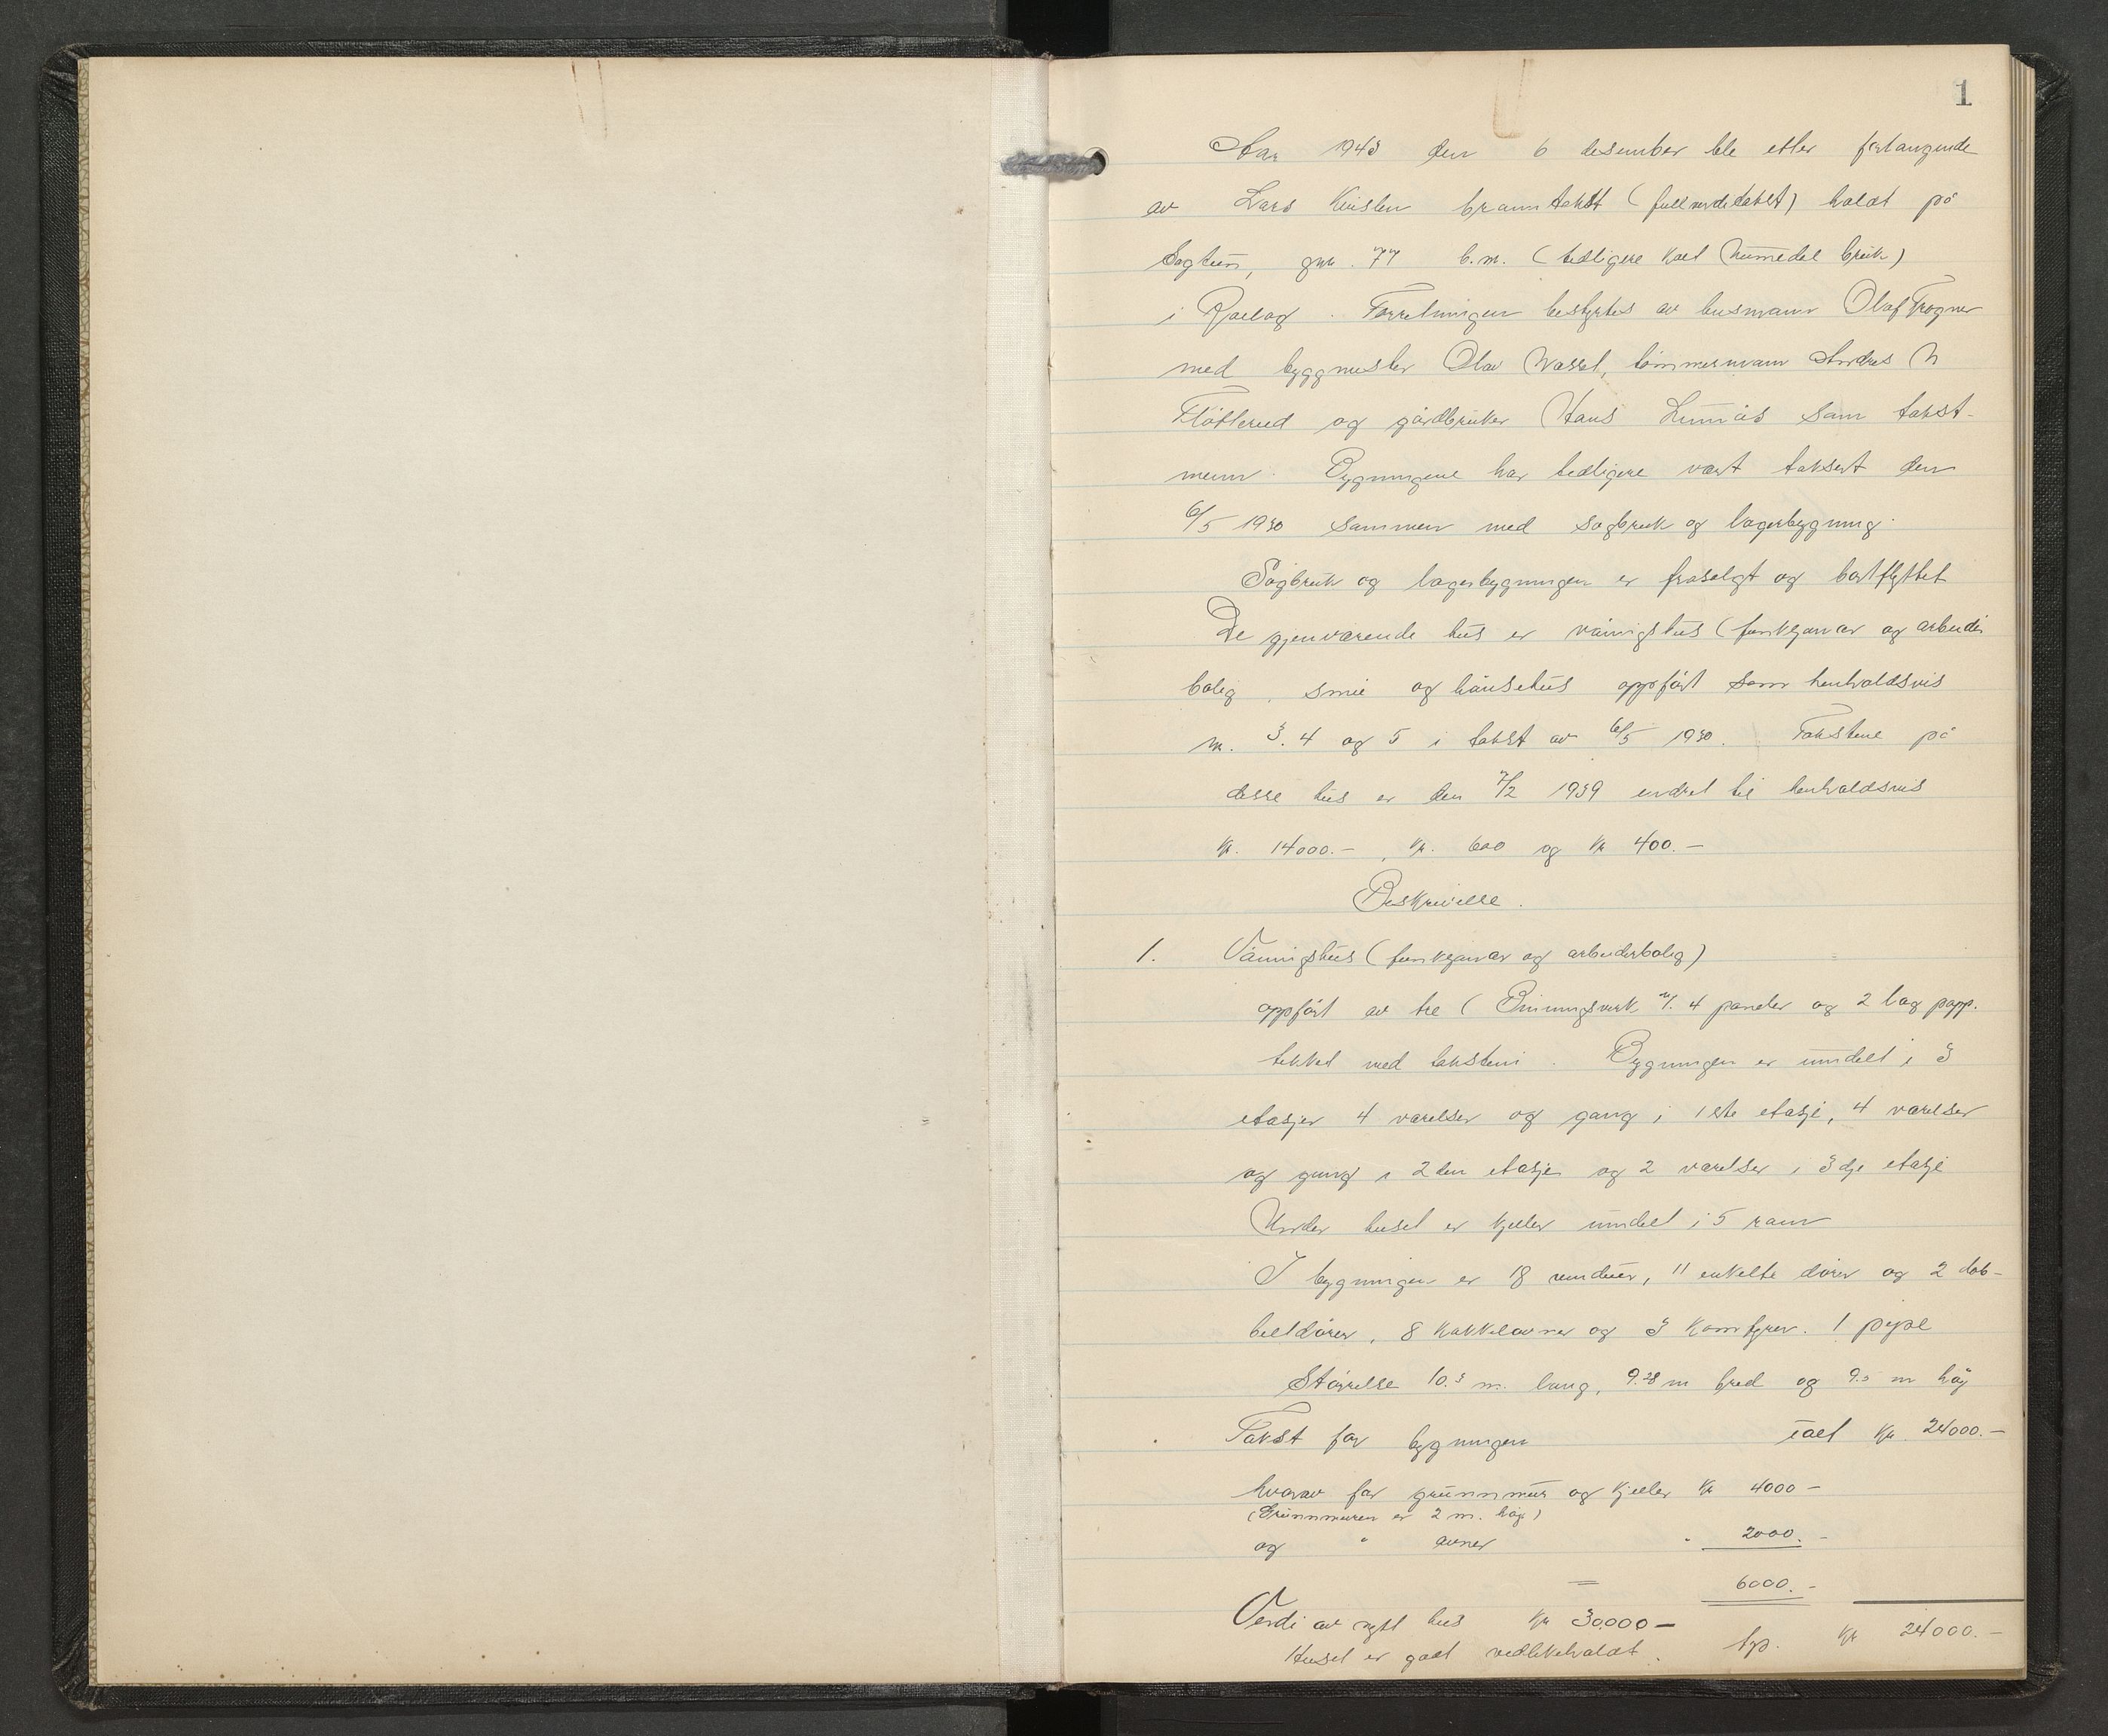 1
Aar 1943 den 6 desember ble etter forlangende
av Lars branntakst (fullverditakst) holdt på
Sagtun, gnr. 77 b.nr. (tidligere Karl Numedal bruk)
i Rælag. Forretningen bestyrtes av lensmann Olaf Trogner
med byggmester Olav tømmermann Andres N
Fløtterud og gårdbruker Hans Lunnås som takst-
menn. Bygningene har tidligere vært taksert den
6/5 1930 sammen med sagbruk og lagerbygning.
Sagbruk og lagerbygningen er frasolgt og bortflyttet
De gjenværende hus er våningshus (funksjonær og arbeider
bolig, smie og hønsehus oppført som henholdsvis
nr. 3. 4 og 5 i takst av 6/5 1930. Takstene på
disse hus er den 7/2 1939 endret til henholdsvis
kr. 14000.-, kr. 600 og kr 400.-
Beskrivelse.
1. Våningshus (funksjonær og arbeiderbolig)
oppført av tre (Binningsverk m/. 4 paneler og 2 lag papp.
tekket med takstein. Bygningen er inndelt i 3
etasjer 4 værelser og gang i 1ste etasje, 4 værelser
og gang i 2den etasje og 2 værelser i 3dje etasje
Under huset er kjeller inndelt i 5 rom
I bygningen er 18 vinduer, 11 enkelte dører og 2 dob-
beltdører, 8 kakkelovner og 3 komfyrer. 1 pipe
Størrelse 10.3 m. lang, 9.28 m bred og 9.5 m høy
Takst for bygningen ialt kr 24000.-
hvorav for grunnmur og kjeller kr 4000-
(Grunnmuren er 2 m. høy)
og " ovner " 2000.-
= 6000.-
Verdi av nytt hus kr 30.000-
typ. kr 24000.-
Huset er godt vedlikeholdt.